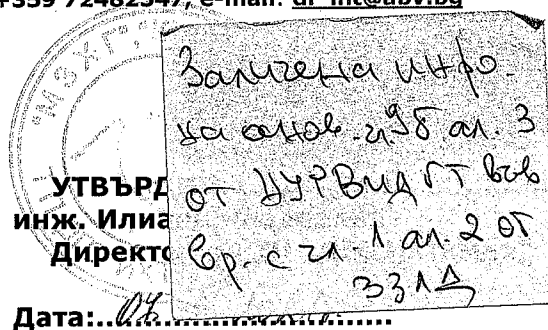 +359 72482547, e-mail: dl_int@abv.bg
Заличена инфо.
на основ. чл. 9б ал. 3
от ЦУРВИДГТ във
вр. с чл. 1 ал. 2 от
ЗЗЛД
УТВЪРД
инж. Илиа
Директо
Дата: